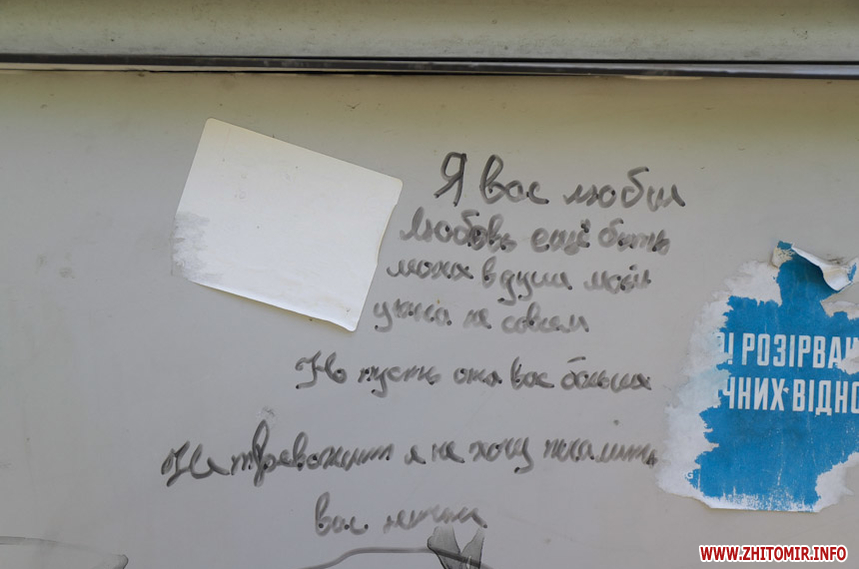 Я вас любил
Любовь ещё быть
може в душа моей
угасла не совсем
Но пусть она вас больше
Не тревожит я не хочу печалить
вас ничем
І РОЗІРВАН
ЧНИХ ВІДНО
WWW.ZHITOMIR.INFO